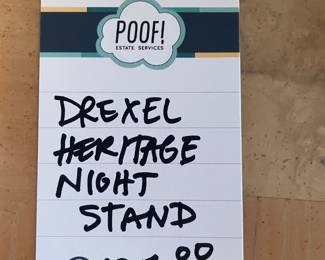 POOF!
ESTATE SERVICES
DREXEL
HERITAGE
NIGHT
STAND